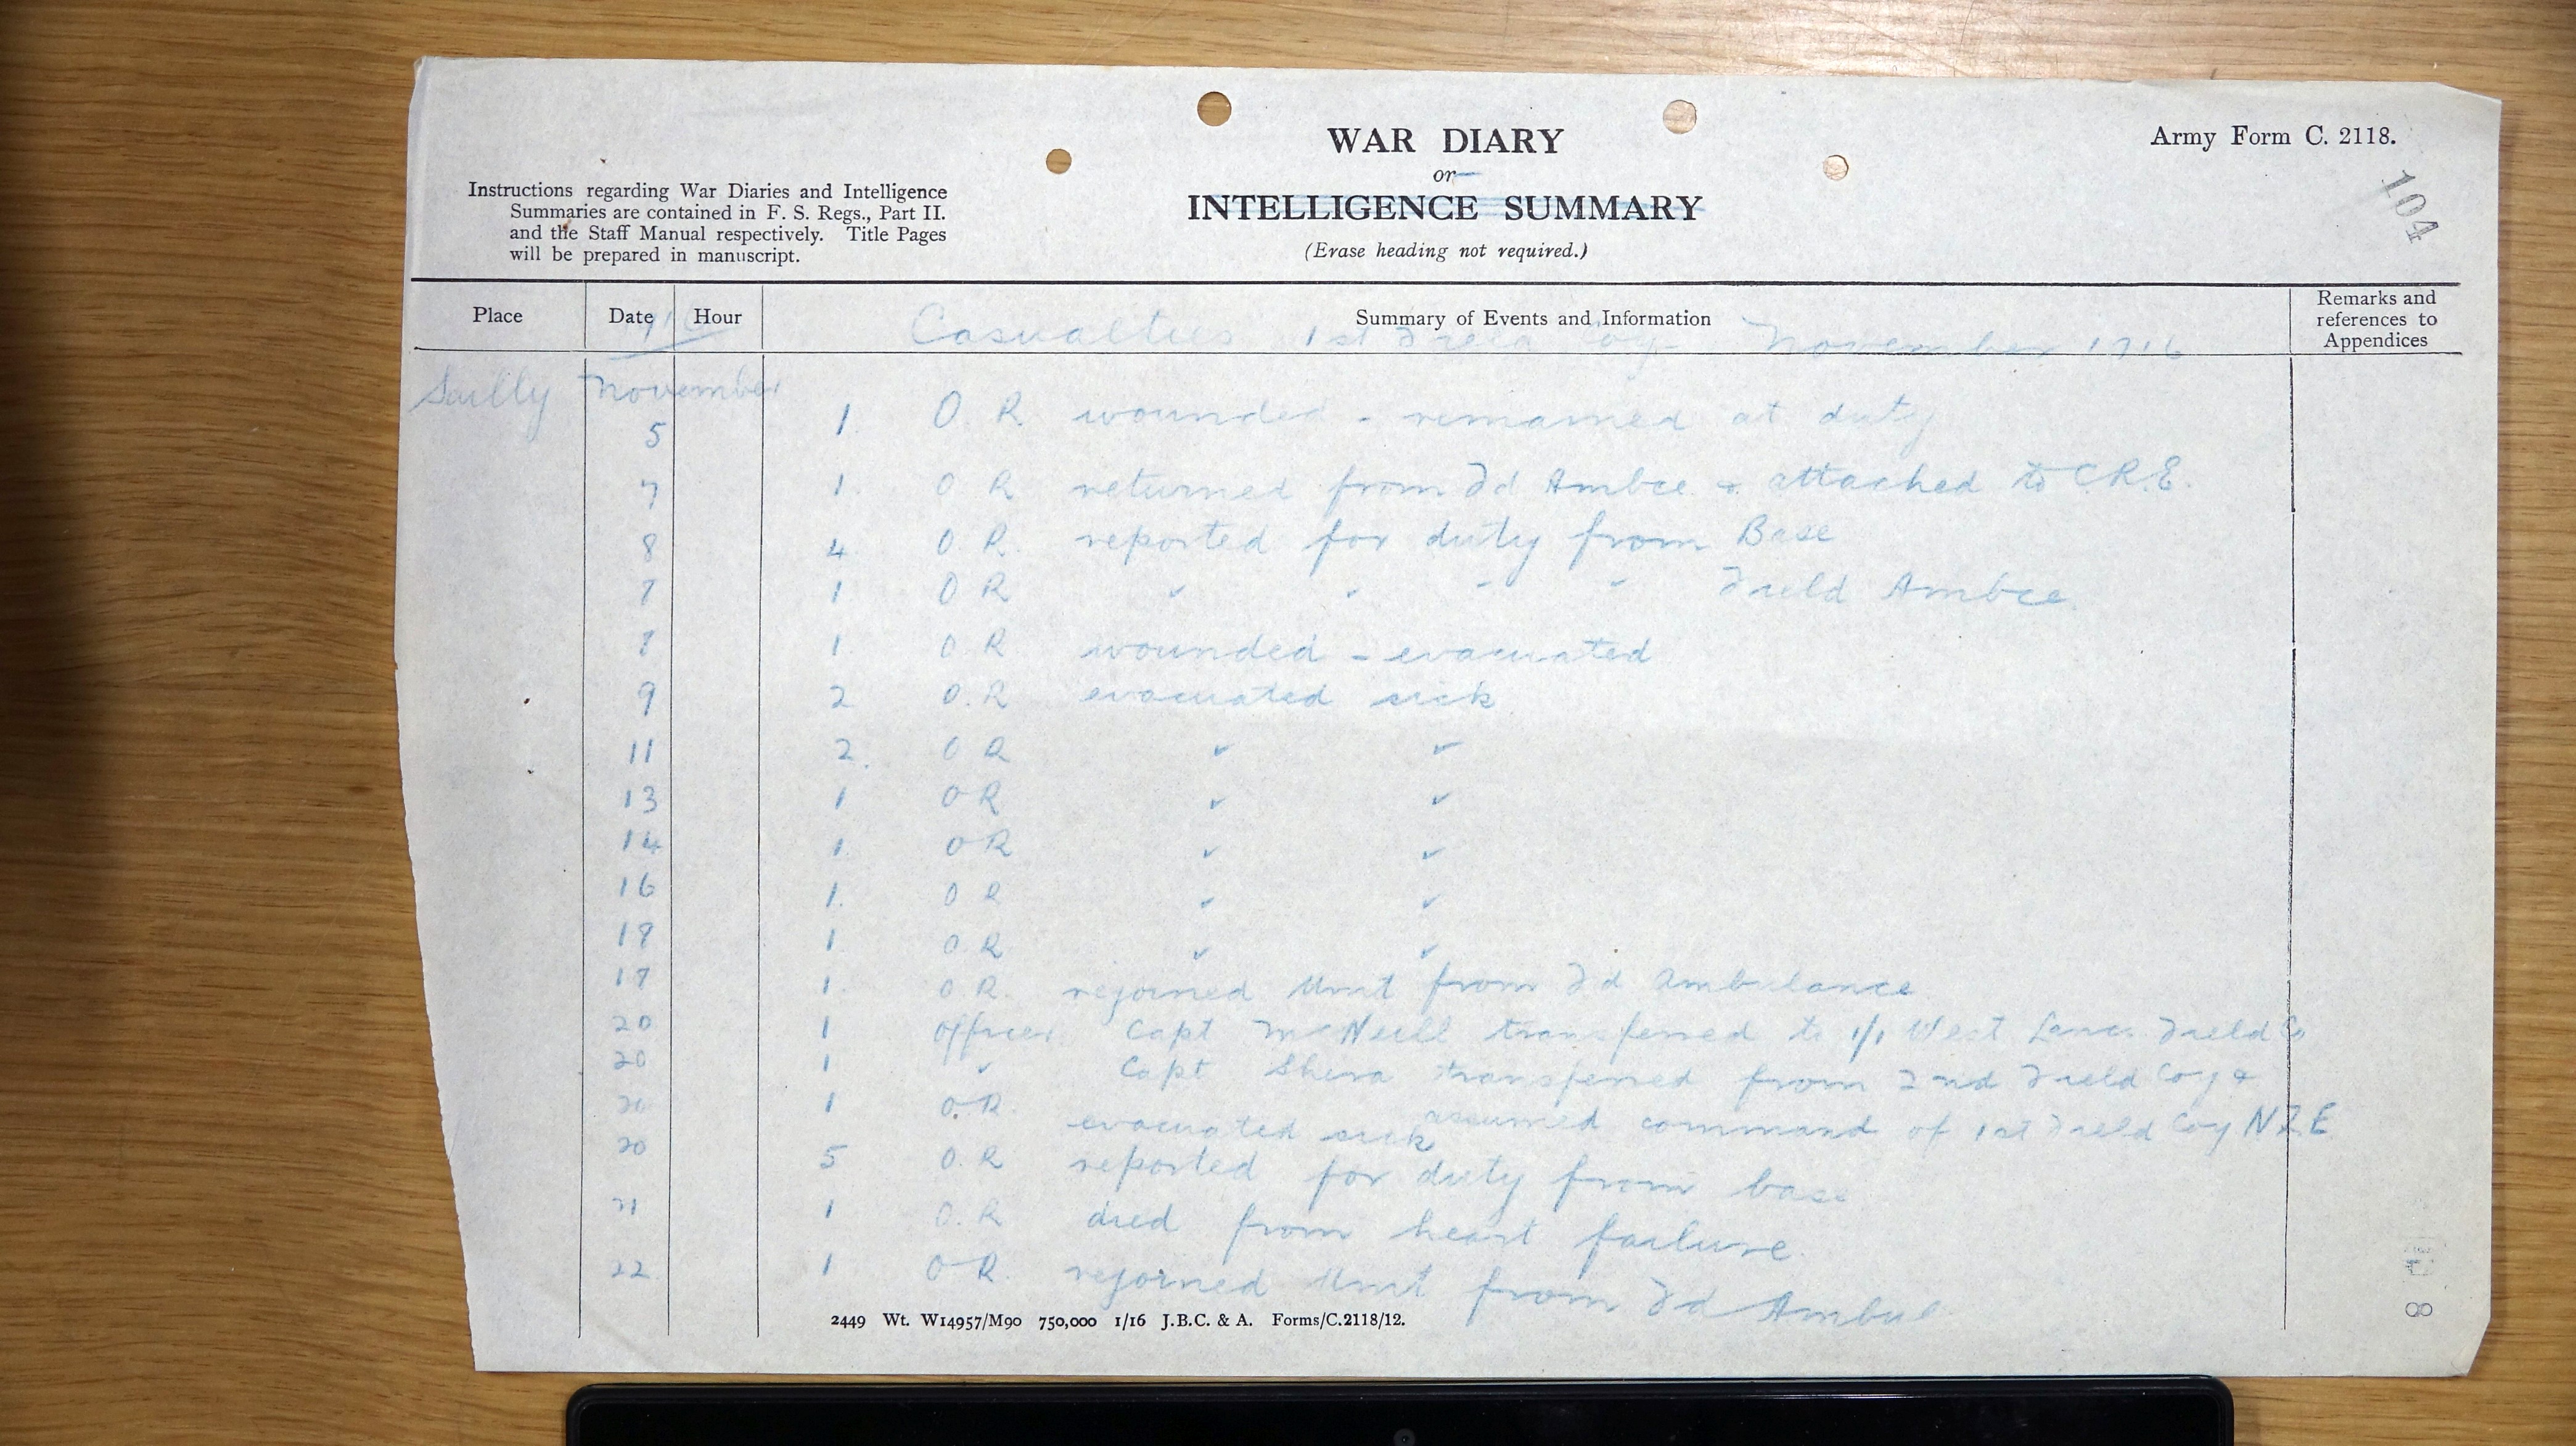 WAR DIARY
or
INTELLIGENCE SUMMARY
(Erase heading not required.)
Army Form C. 2118.
104
Instructions regarding War Diaries and Intelligence
Summaries are contained in F. S. Regs., Part II.
and the Staff Manual respectively. Title Pages
will be prepared in manuscript.
Place Date Hour Summary of Events and Information Remarks and references to Appendices
Casualties 1st Field Coy November 1916
Sailly November
5 1. O R wounded - remained at duty
7 1 O R returned from Fd Ambce & attached to C.R.E.
8 4 O. R. reported for duty from Base
7 1 O R " " " " Field Ambce
8 1. O. R. wounded - evacuated
9 2 O. R evacuated sick
11 2. O R " "
13 1 O R " "
14 1. O R " "
16 1. O R " "
19 1 O. R " "
17 1. O R. rejoined Unit from Fd Ambulance
20 1 officer Capt McNeill transferred to 1/1 West Lancs Field Co
20 1 " Capt Shera transferred from 2nd Field Coy &
assumed command of 1st Field Coy N Z E
20 1 O. R. evacuated sick
20 5 O. R reported for duty from base
21 1 O. R died from heart failure
22 1 O R. rejoined Unit from Fd Ambul
2449 Wt. W14957/M90 750,000 1/16 J.B.C. & A. Forms/C.2118/12.
8